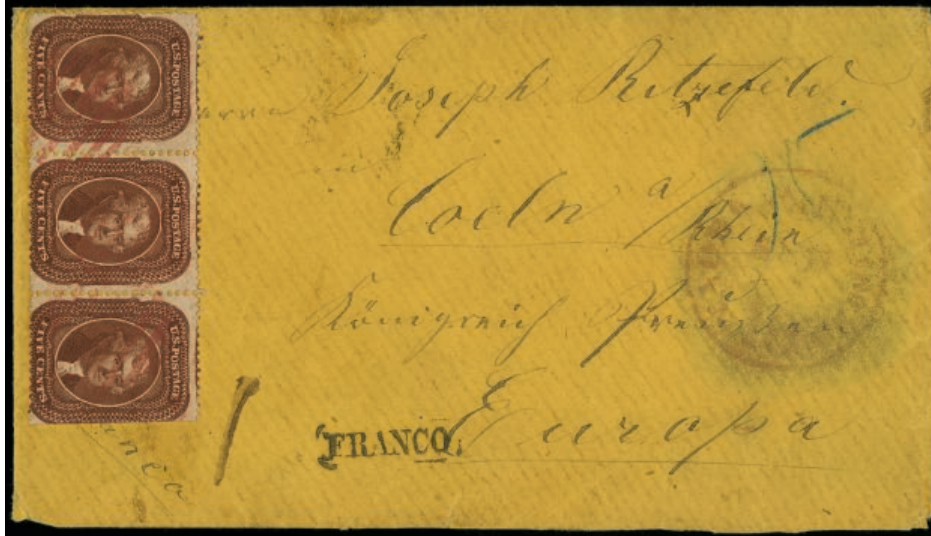 U.S. POSTAGE
FIVE CENTS
U.S. POSTAGE
FIVE CENTS
U.S. POSTAGE
FIVE CENTS
Joseph Ritzefeld.
in
Coeln a/Rhein
Königreich Preußen
Europa
FRANCO